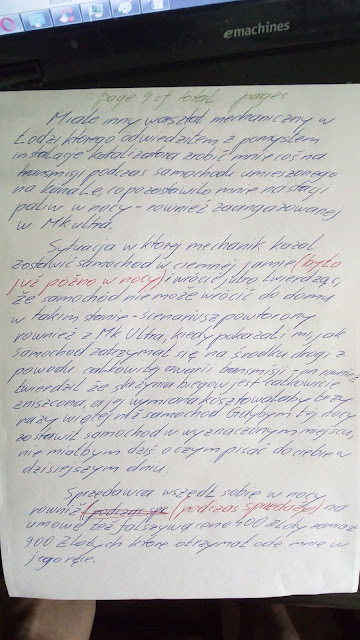 emachines
page 9 of total pages
Miałe inny warsztat mechaniczny w
Łodzi którego odwiedziłem z pomysłem
instalacje katalizatora zrobić mnie coś na
transmisji podczas samochodu umieszonego
na kanale, co pozostawiło mnie na stacji
paliw w nocy - rownież zaangażowanej
w Mk ultra.
Sytuacja w której mechanik kazał
zostawić samochód w ciemnej jamie (było
już późno w nocy) i wrócić jutro twierdząc,
że samochód nie może wrócić do domu
w takim stanie - scenariusz powtórzony
rownież z Mk Ultra, kiedy pokazali mi, jak
samochód zatrzymał się na środku drogi z
powodu całkowitej awarii transmisji i on rownież
twierdził że skrzynia biegów jest całkowicie
zniszczona, a jej wymiana kosztowałaby trzy
razy więtej niż samochód. Gdybym tej nocy
zostawił samochód w wyznaczonym miejscu,
nie miałbym dziś o czym pisać do ciebie w
dzisiejszym dniu.
Sprzedawca wszedł sobie w nocy
rownież (podczas spr (podczas sprzedaże) na
umowe też fałszywą cone 400 złoty zamiast
900 złotych które otrzymał ode mnie w
jego ręie.